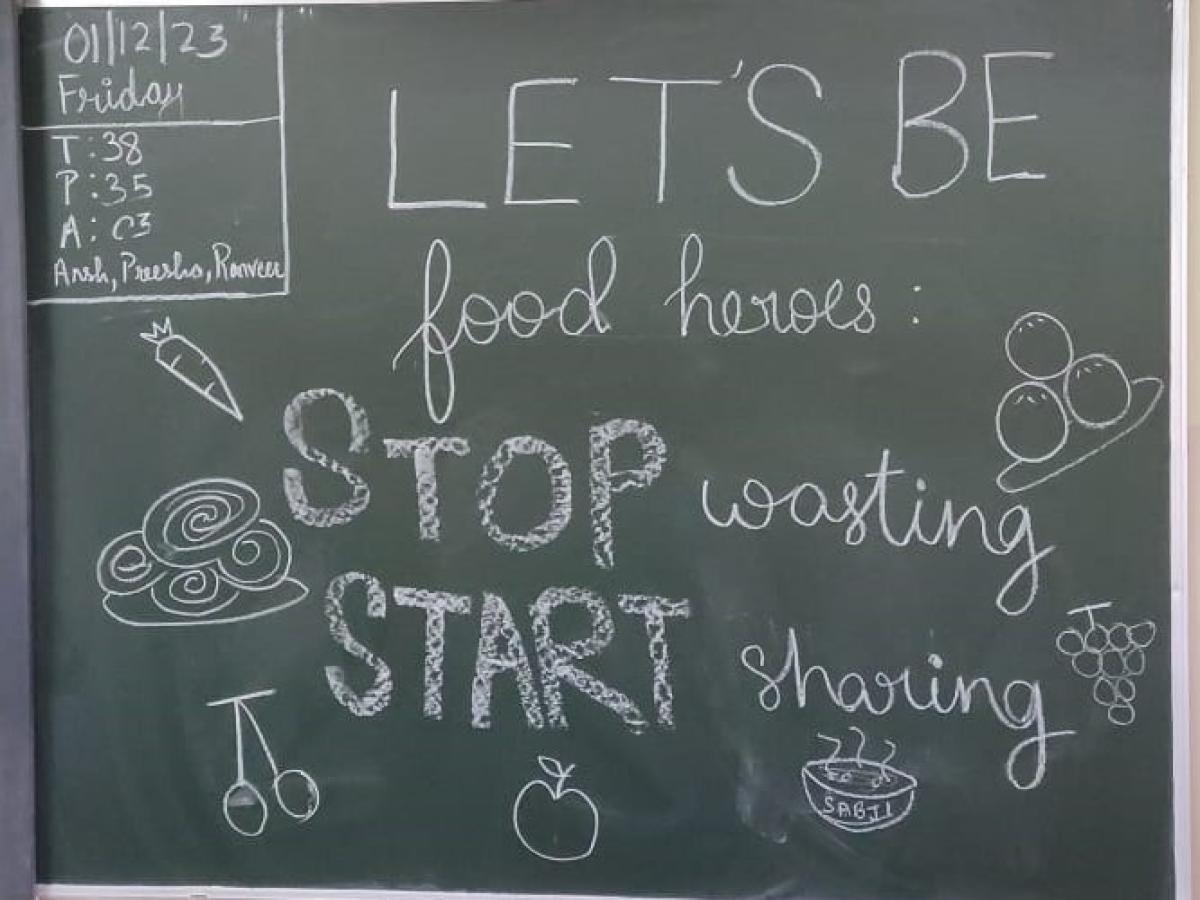 01/12/23
Friday
T : 38
P : 35
A : 03
Ansh, Preesha, Ranveer
LET'S BE
food heroes :
STOP wasting
START sharing
SABJI